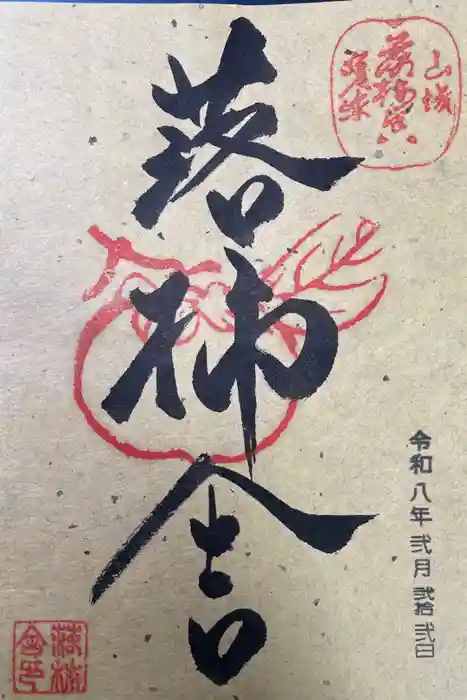 山城
落柿舎
嵯峨
落柿舎
令和八年弐月弐拾弐日
落柿舎印